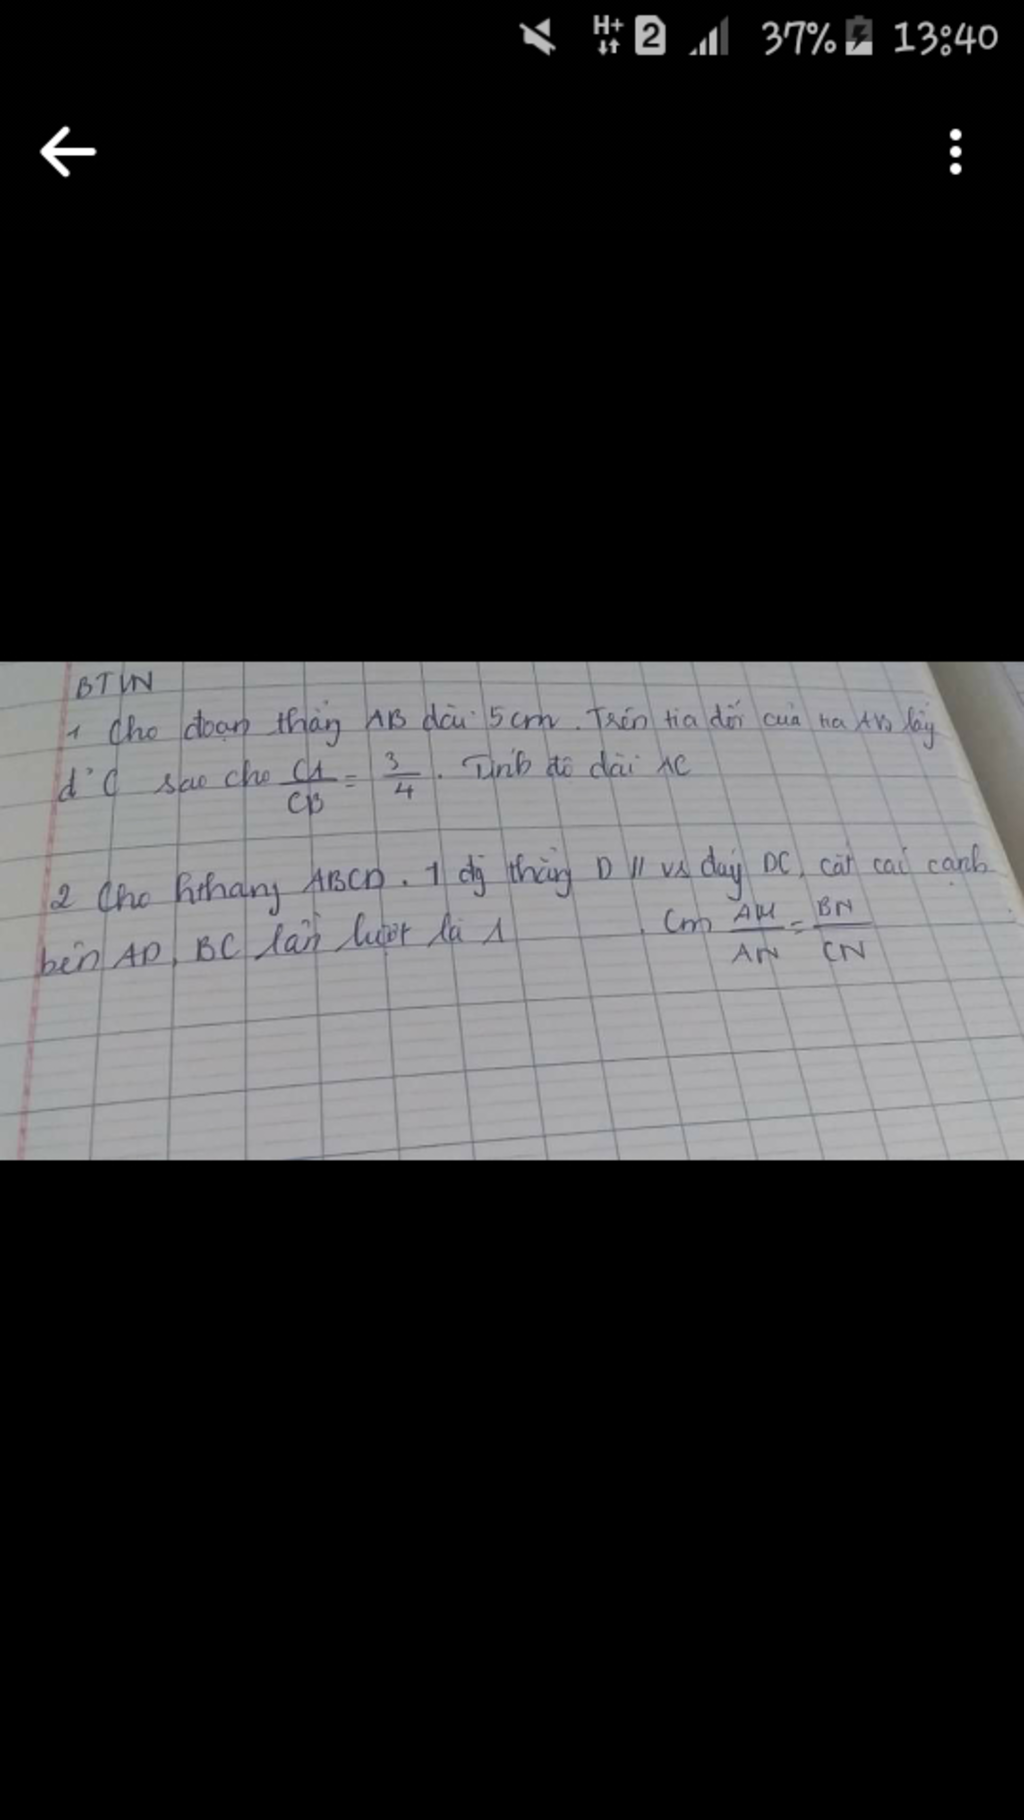 H+ 2 37% 13:40
BTVN
1 Cho đoạn thẳng AB dài 5cm. Trên tia đối của tia AB lấy
đ' C sao cho CA/CB = 3/4. Tính độ dài AC
2 Cho hthang ABCD. 1 đg thẳng D // vs đáy DC, cắt các cạnh
bên AD, BC lần lượt là . Cm AM/AN = BN/CN